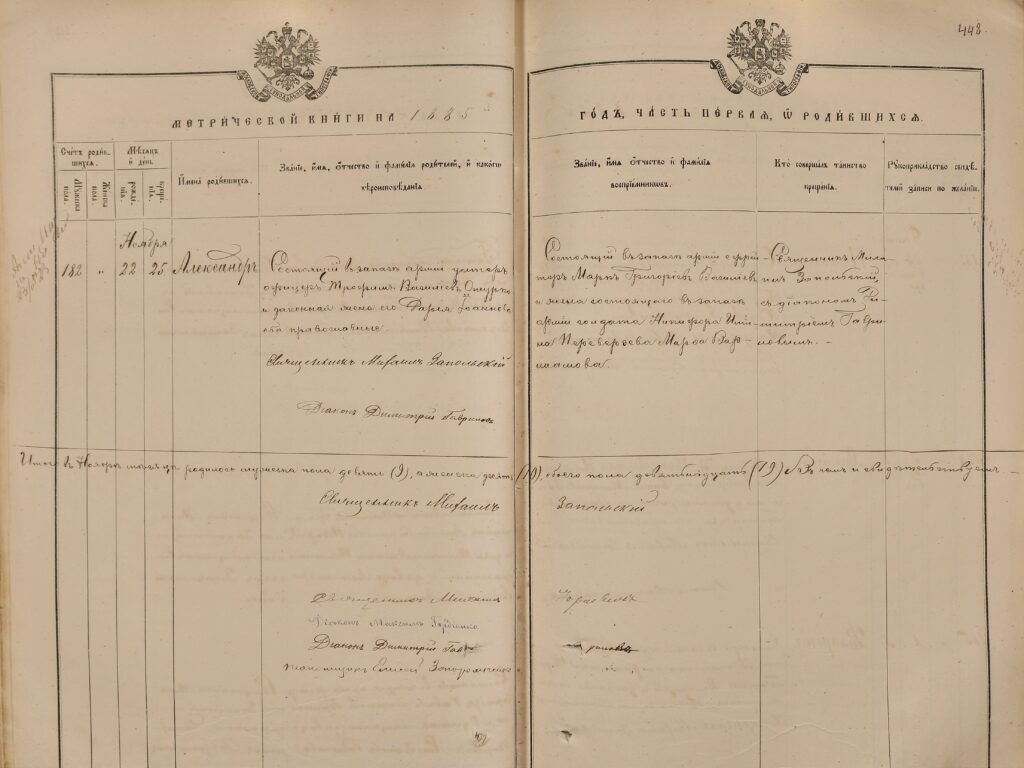 448.
МЕТРИЧЕСКОЙ КНИГИ НА 1885 ГОДЪ, ЧАСТЬ ПЕРВАЯ, Ѿ РОДИВШИХСЯ.
Счетъ родив-
шихся.
Мужеска
пола.
Женска
пола.
Мѣсяцъ
и день
рожде-
нія.
креще-
нія.
Имена родившихся.
Званіе, имя, отчество и фамилія родителей, и какого
вѣроисповѣданія
Званіе, имя, отчество и фамилія
воспріемниковъ.
Кто совершалъ таинство
крещенія.
Рукоприкладство свидѣ-
телей записи по желанію.
Ноября
182 „ 22 25 Александръ
Состоящій въ запасѣ арміи унтеръ
офицеръ Трофимъ Васильевъ
и законная жена его Дарья Іоаннова
оба православные.
Священникъ Михаилъ Запольскій
Діаконъ Димитрій Гавриловъ
Состоящій въ запасѣ арміи ефрей-
торъ Маркъ Григорьевъ Васильевъ
и жена состоящаго въ запасѣ
арміи солдата Никифора
Переверзева Марѳа Вар-
лаамова.
Священникъ Миха-
илъ Запольскій,
съ діакономъ Ди-
митріемъ Гаври-
ловымъ.
Итого въ Ноябрѣ мѣсяцѣ родилось мужеска пола девять (9), а женска десять (10), обоего пола девятнадцать (19) въ чемъ и свидѣтельствуемъ.
Священникъ Михаилъ Запольскій
Священникъ
Діаконъ Максимъ
Діаконъ Димитрій
Псаломщикъ Елисей